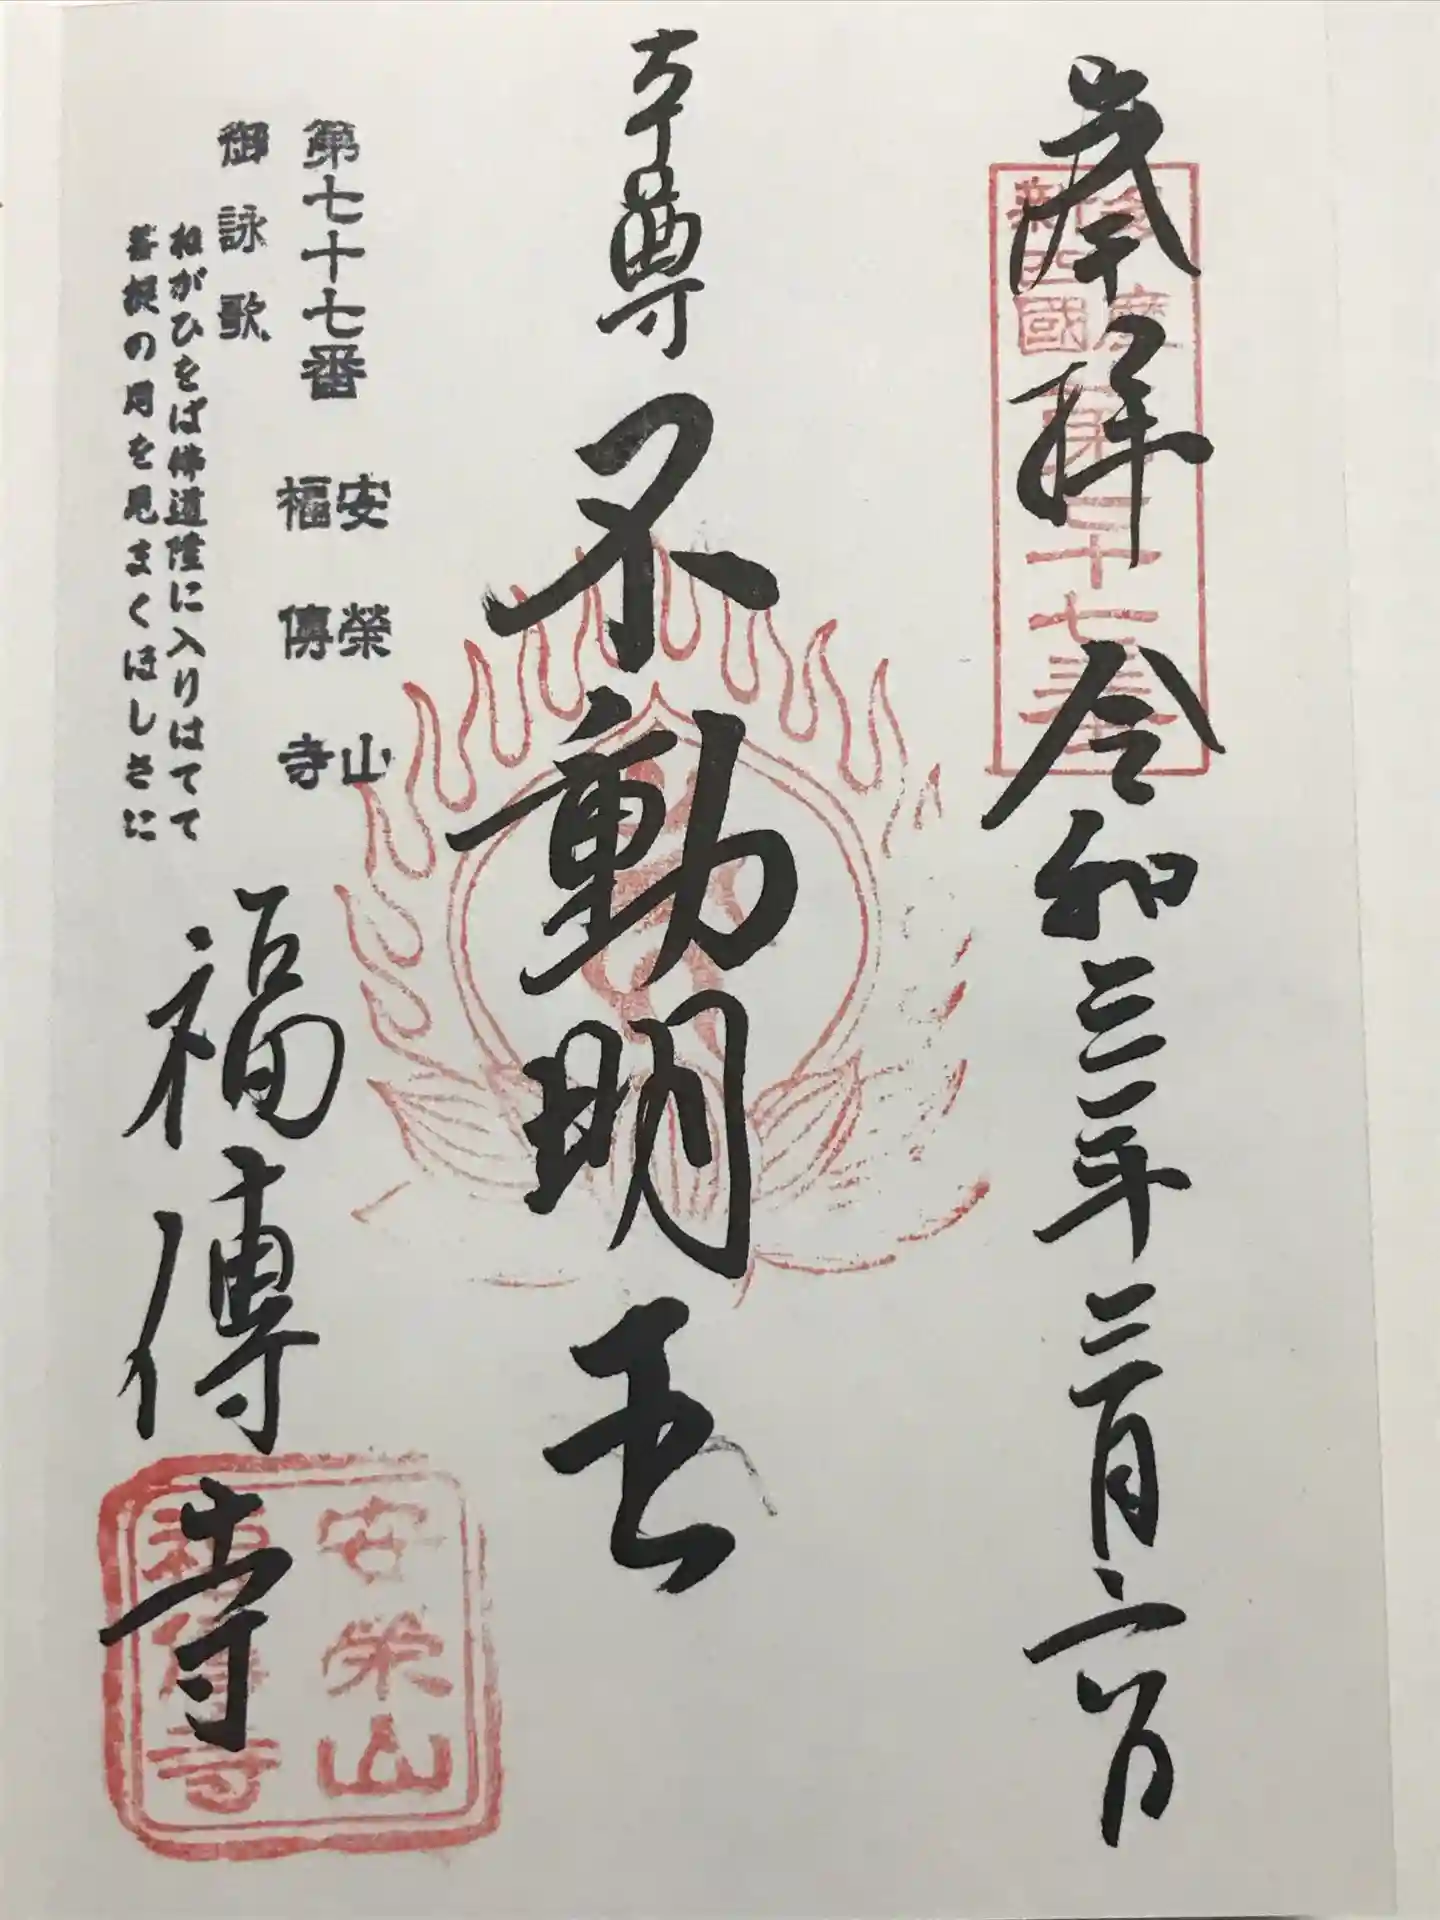 奉拝 令和三年三月六日
多摩
新四國
第七十七番
本尊 不動明王
第七十七番 安榮山 福傳寺
御詠歌
ねがひをば佛道隆に入りはてて
菩提の月を見まくほしさに
福傳寺
安栄山
福傳寺